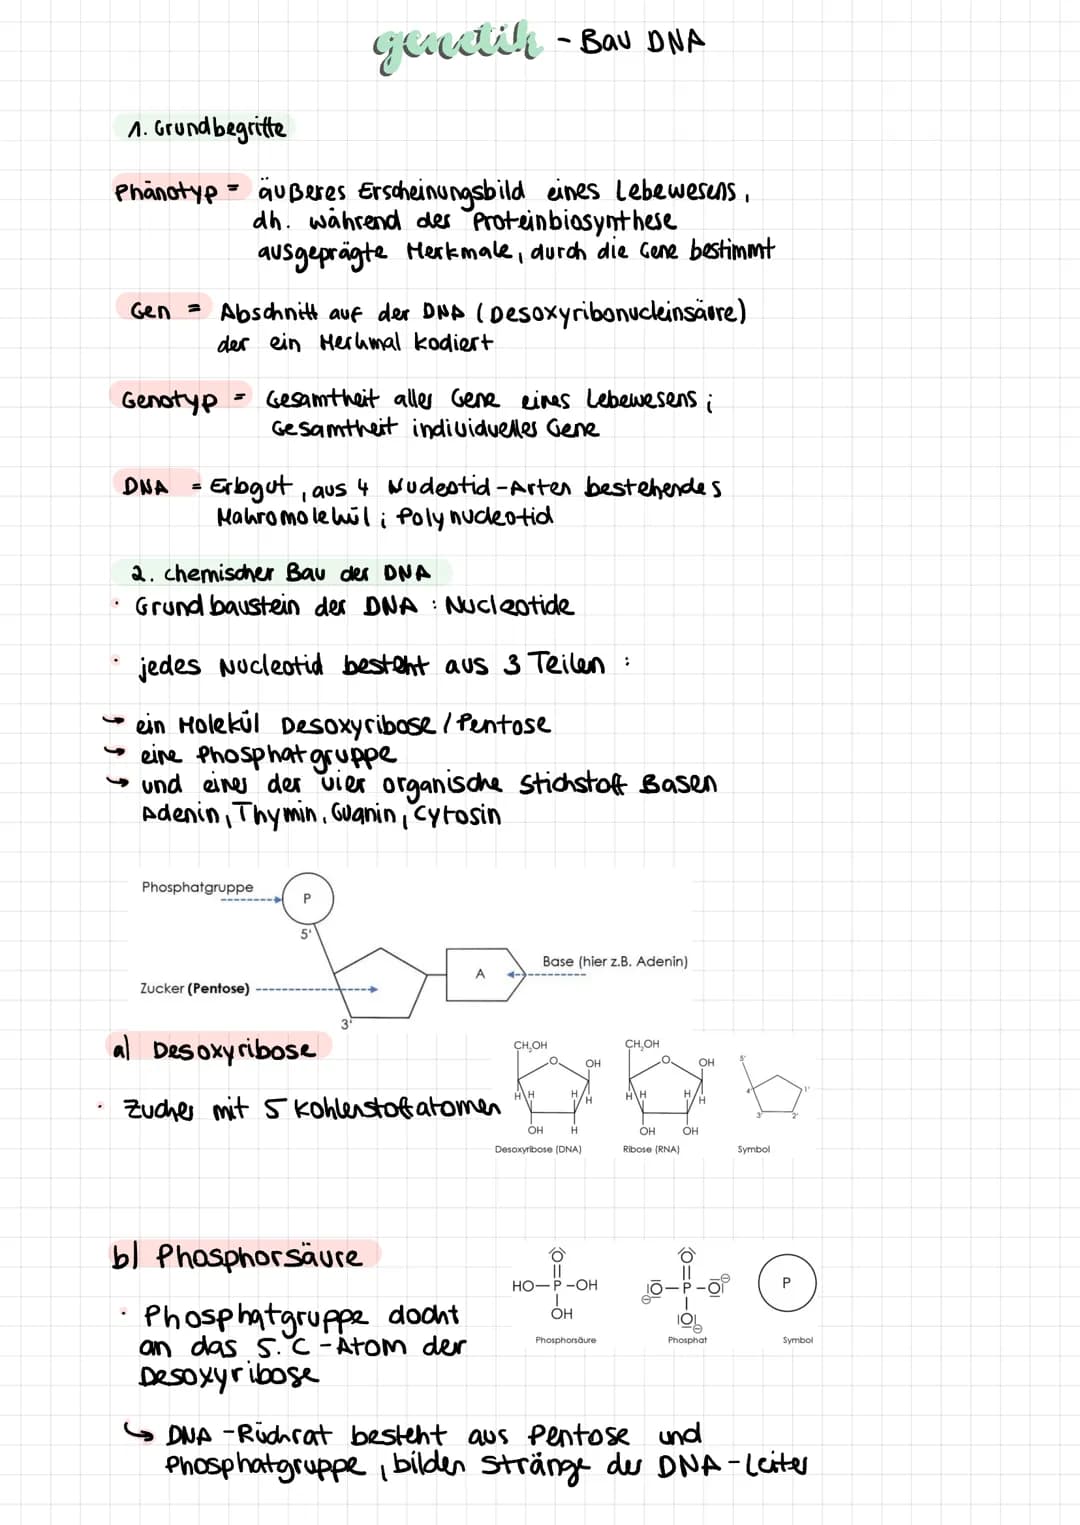 genetik - Bau DNA
1. Grundbegriffe
Phänotyp = äußeres Erscheinungsbild eines Lebewesens,
dh. während der Proteinbiosynthese
ausgeprägte Merkmale, durch die Gene bestimmt
Gen = Abschnitt auf der DNA (Desoxyribonucleinsäure)
der ein Merkmal kodiert
Genotyp = Gesamtheit aller Gene eines Lebewesens;
Gesamtheit individueller Gene
DNA = Erbgut, aus 4 Nucleotid-Arten bestehendes
Makromolekül; Polynucleotid
2. chemischer Bau der DNA
· Grundbaustein der DNA: Nucleotide
· jedes Nucleotid besteht aus 3 Teilen:
↪ ein Molekül Desoxyribose / Pentose
↪ eine Phosphatgruppe
↪ und eines der vier organische Stickstoff Basen
Adenin, Thymin, Guanin, Cytosin
Phosphatgruppe
P
5'
Base (hier z.B. Adenin)
A
Zucker (Pentose)
3'
a) Desoxyribose
· Zucker mit 5 Kohlenstoffatomen
CH₂OH
O
OH
H H H H
OH H
Desoxyribose (DNA)
CH₂OH
O
OH
H H H H
OH OH
Ribose (RNA)
5'
4' 1'
3' 2'
Symbol
b) Phosphorsäure
· Phosphatgruppe dockt
an das 5. C-Atom der
Desoxyribose
O
HO-P-OH
OH
Phosphorsäure
O
|O-P-O|
|O|
Phosphat
P
Symbol
↪ DNA-Rückrat besteht aus Pentose und
Phosphatgruppe, bilden Stränge der DNA-Leiter